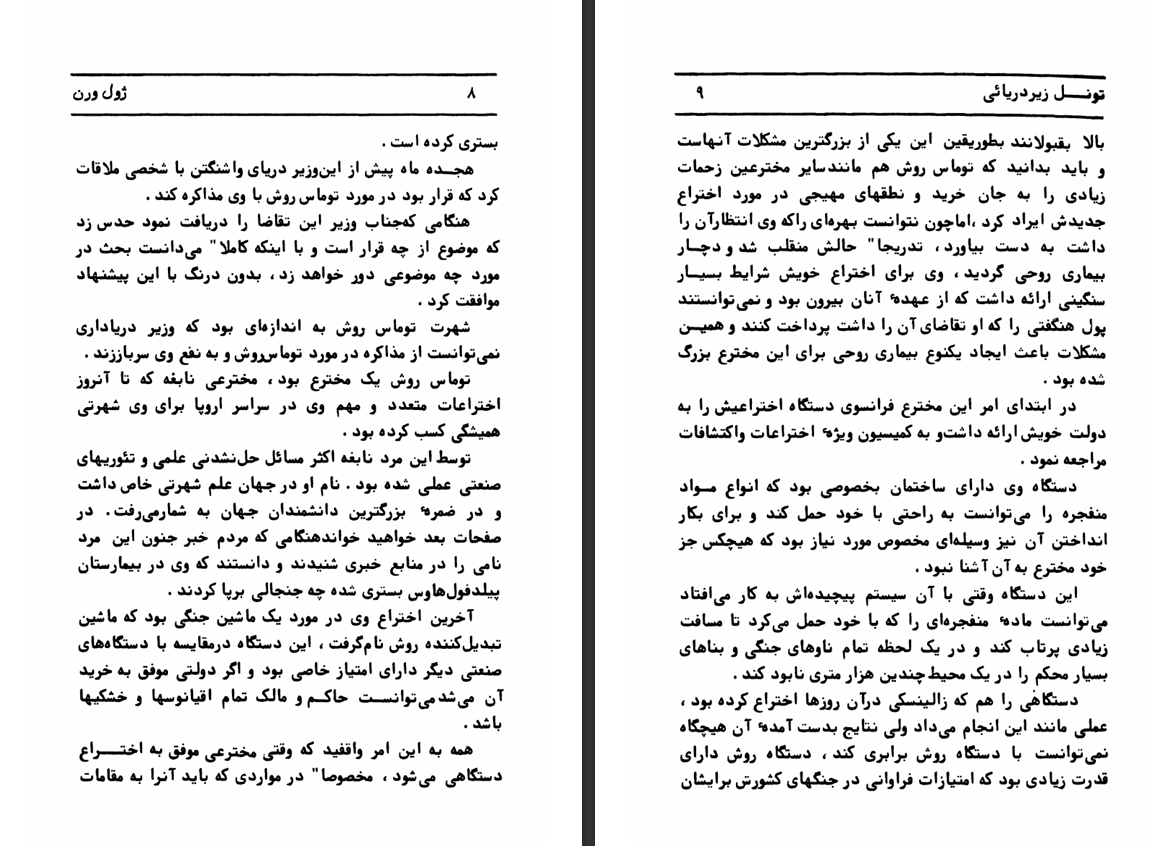 ژول ورن ۸
بستری کرده است .
هجـده ماه پیش از این‌وزیر دریای واشنگتن با شخصی ملاقات
کرد که قرار بود در مورد توماس روش با وی مذاکره کند .
هنگامی که‌جناب وزیر این تقاضا را دریافت نمود حدس زد
که موضوع از چه قرار است و با اینکه کاملا" می‌دانست بحث در
مورد چه موضوعی دور خواهد زد ، بدون درنگ با این پیشنهاد
موافقت کرد .
شهرت توماس روش به اندازه‌ای بود که وزیر دریاداری
نمی‌توانست از مذاکره در مورد توماس‌روش و به نفع وی سرباززند .
توماس روش یک مخترع بود ، مخترعی نابغه که تا آنروز
اختراعات متعدد و مهم وی در سراسر اروپا برای وی شهرتی
همیشگی کسب کرده بود .
توسط این مرد نابغه اکثر مسائل حل‌نشدنی علمی و تئوریهای
صنعتی عملی شده بود . نام او در جهان علم شهرتی خاص داشت
و در ضمرهٔ بزرگترین دانشمندان جهان به شمارمی‌رفت . در
صفحات بعد خواهید خواندهنگامی که مردم خبر جنون این مرد
نامی را در منابع خبری شنیدند و دانستند که وی در بیمارستان
پیلدفول‌هاوس بستری شده چه جنجالی برپا کردند .
آخرین اختراع وی در مورد یک ماشین جنگی بود که ماشین
تبدیل‌کننده روش نام‌گرفت ، این دستگاه درمقایسه با دستگاه‌های
صنعتی دیگر دارای امتیاز خاصی بود و اگر دولتی موفق به خرید
آن می‌شدمی‌توانسـت حاکـم و مالک تمام اقیانوسها و خشکیها
باشد .
همه به این امر واقفید که وقتی مخترعی موفق به اختـــراع
دستگاهی می‌شود ، مخصوصا" در مواردی که باید آنرا به مقامات
تونـــل زیردریائی ۹
بالا بقبولانند بطوریقین این یکی از بزرگترین مشکلات آنهاست
و باید بدانید که توماس روش هم مانندسایر مخترعین زحمات
زیادی را به جان خرید و نطقهای مهیجی در مورد اختراع
جدیدش ایراد کرد ،اماچون نتوانست بهره‌ای راکه وی انتظارآن را
داشت به دست بیاورد ، تدریجا" حالش منقلب شد و دچـار
بیماری روحی گردید ، وی برای اختراع خویش شرایط بسیـار
سنگینی ارائه داشت که از عهدهٔ آنان بیرون بود و نمی‌توانستند
پول هنگفتی را که او تقاضای آن را داشت پرداخت کنند و همیـن
مشکلات باعث ایجاد یکنوع بیماری روحی برای این مخترع بزرگ
شده بود .
در ابتدای امر این مخترع فرانسوی دستگاه اختراعیش را به
دولت خویش ارائه داشت‌و به کمیسیون ویژهٔ اختراعات واکتشافات
مراجعه نمود .
دستگاه وی دارای ساختمان بخصوصی بود که انواع مـواد
منفجره را می‌توانست به راحتی با خود حمل کند و برای بکار
انداختن آن نیز وسیله‌ای مخصوص مورد نیاز بود که هیچکس جز
خود مخترع به آن آشنا نبود .
این دستگاه وقتی با آن سیستم پیچیده‌اش به کار می‌افتاد
می‌توانست مادهٔ منفجره‌ای را که با خود حمل می‌کرد تا مسافت
زیادی پرتاب کند و در یک لحظه تمام ناوهای جنگی و بناهای
بسیار محکم را در یک محیط‌چندین هزار متری نابود کند .
دستگاهی را هم که زالینسکی درآن روزها اختراع کرده بود ،
عملی مانند این انجام می‌داد ولی نتایج بدست آمدهٔ آن هیچگاه
نمی‌توانست با دستگاه روش برابری کند ، دستگاه روش دارای
قدرت زیادی بود که امتیازات فراوانی در جنگهای کشورش برایشان